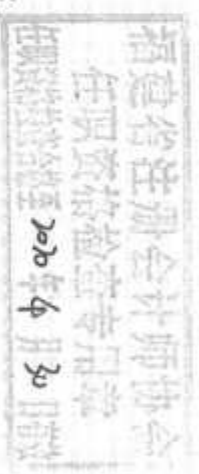 福建省注册会计师协会
任职资格检查专用章
2020年6月30日